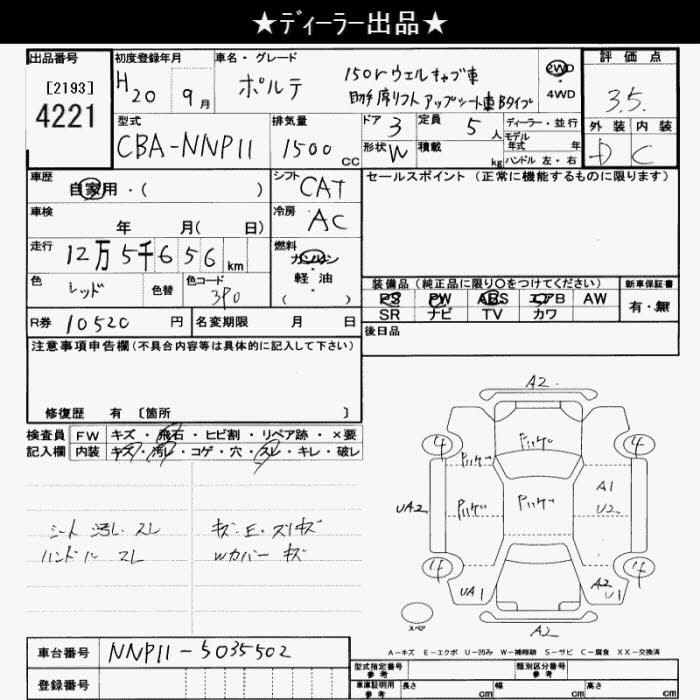 ★ディーラー出品★
出品番号 初度登録年月 車名・グレード 評価点
[2193]
4221
H20 9月 ポルテ 150r ウェルキャブ車
助手席リフトアップシート車Bタイプ
2WD
4WD
3.5
型式 排気量 ドア 3 定員 5人 ディーラー・並行 外装 内装
CBA-NNP11 1500cc 形状 W 積載 kg モデル年式 年 D C
ハンドル 左・右
車歴 シフト セールスポイント(正常に機能するものに限ります)
自家用・( ) CAT
車検 冷房
年 月( 日) AC
走行 燃料
12万5千656km ガソリン
軽油
( )
色 色替 色コード 装備品(純正品に限り○をつけてください) 新車保証書
レッド 3P0 PS PW ABS エアB AW 有・無
SR ナビ TV カワ
R券 10520円 名変期限 月 日 後日品
注意事項申告欄(不具合内容等は具体的に記入して下さい)
修復歴 有 〔箇所 〕
検査員 FW キズ・飛石・ヒビ割・リペア跡・×要
記入欄 内装 キズ・汚レ・コゲ・穴・スレ・キレ・破レ
シート 汚レ・スレ キズ・E・スリキズ
ハンドル スレ Wカバー キズ
A2
4 4
Pハゲ
Pハゲ
UA2 Pハゲ Pハゲ A1
U2
4 4
UA1 A2
U1
スペア A2
A-キズ E-エクボ U-凹み W-補修跡 S-サビ C-腐食 XX-交換済
車台番号 NNP11-5035502
登録番号
型式指定番号 参考 類別区分番号 参考
車庫証明用 参考 長さ cm 幅 cm 高さ cm